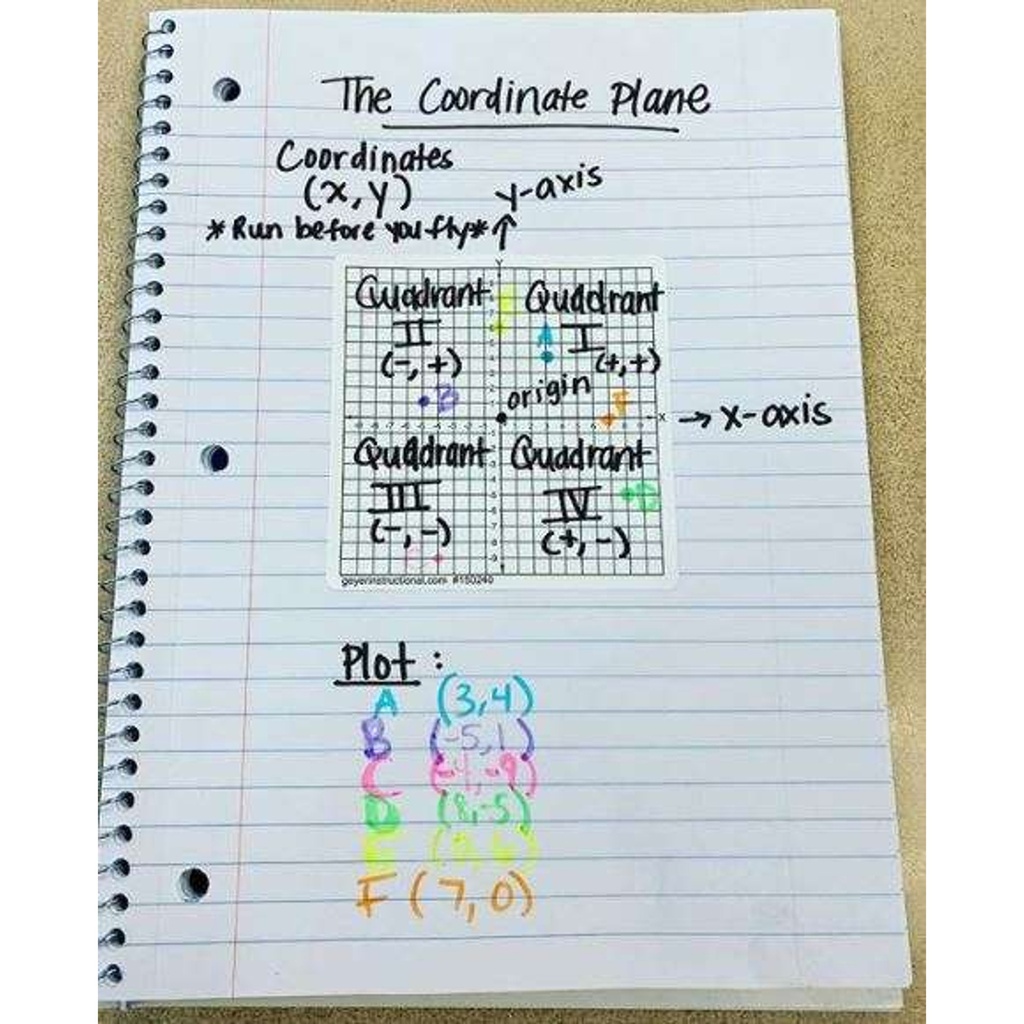 The Coordinate Plane
Coordinates
(x, y)
y-axis
*Run before you fly*
Y
Quadrant
II
(-, +)
Quadrant
I
(+, +)
A
B
origin
F
X
x-axis
Quadrant
III
(-, -)
Quadrant
IV
(+, -)
D
geyerinstructional.com #150240
Plot :
A (3,4)
B (-5,1)
C (-4,-9)
D (8,-5)
F (7,0)